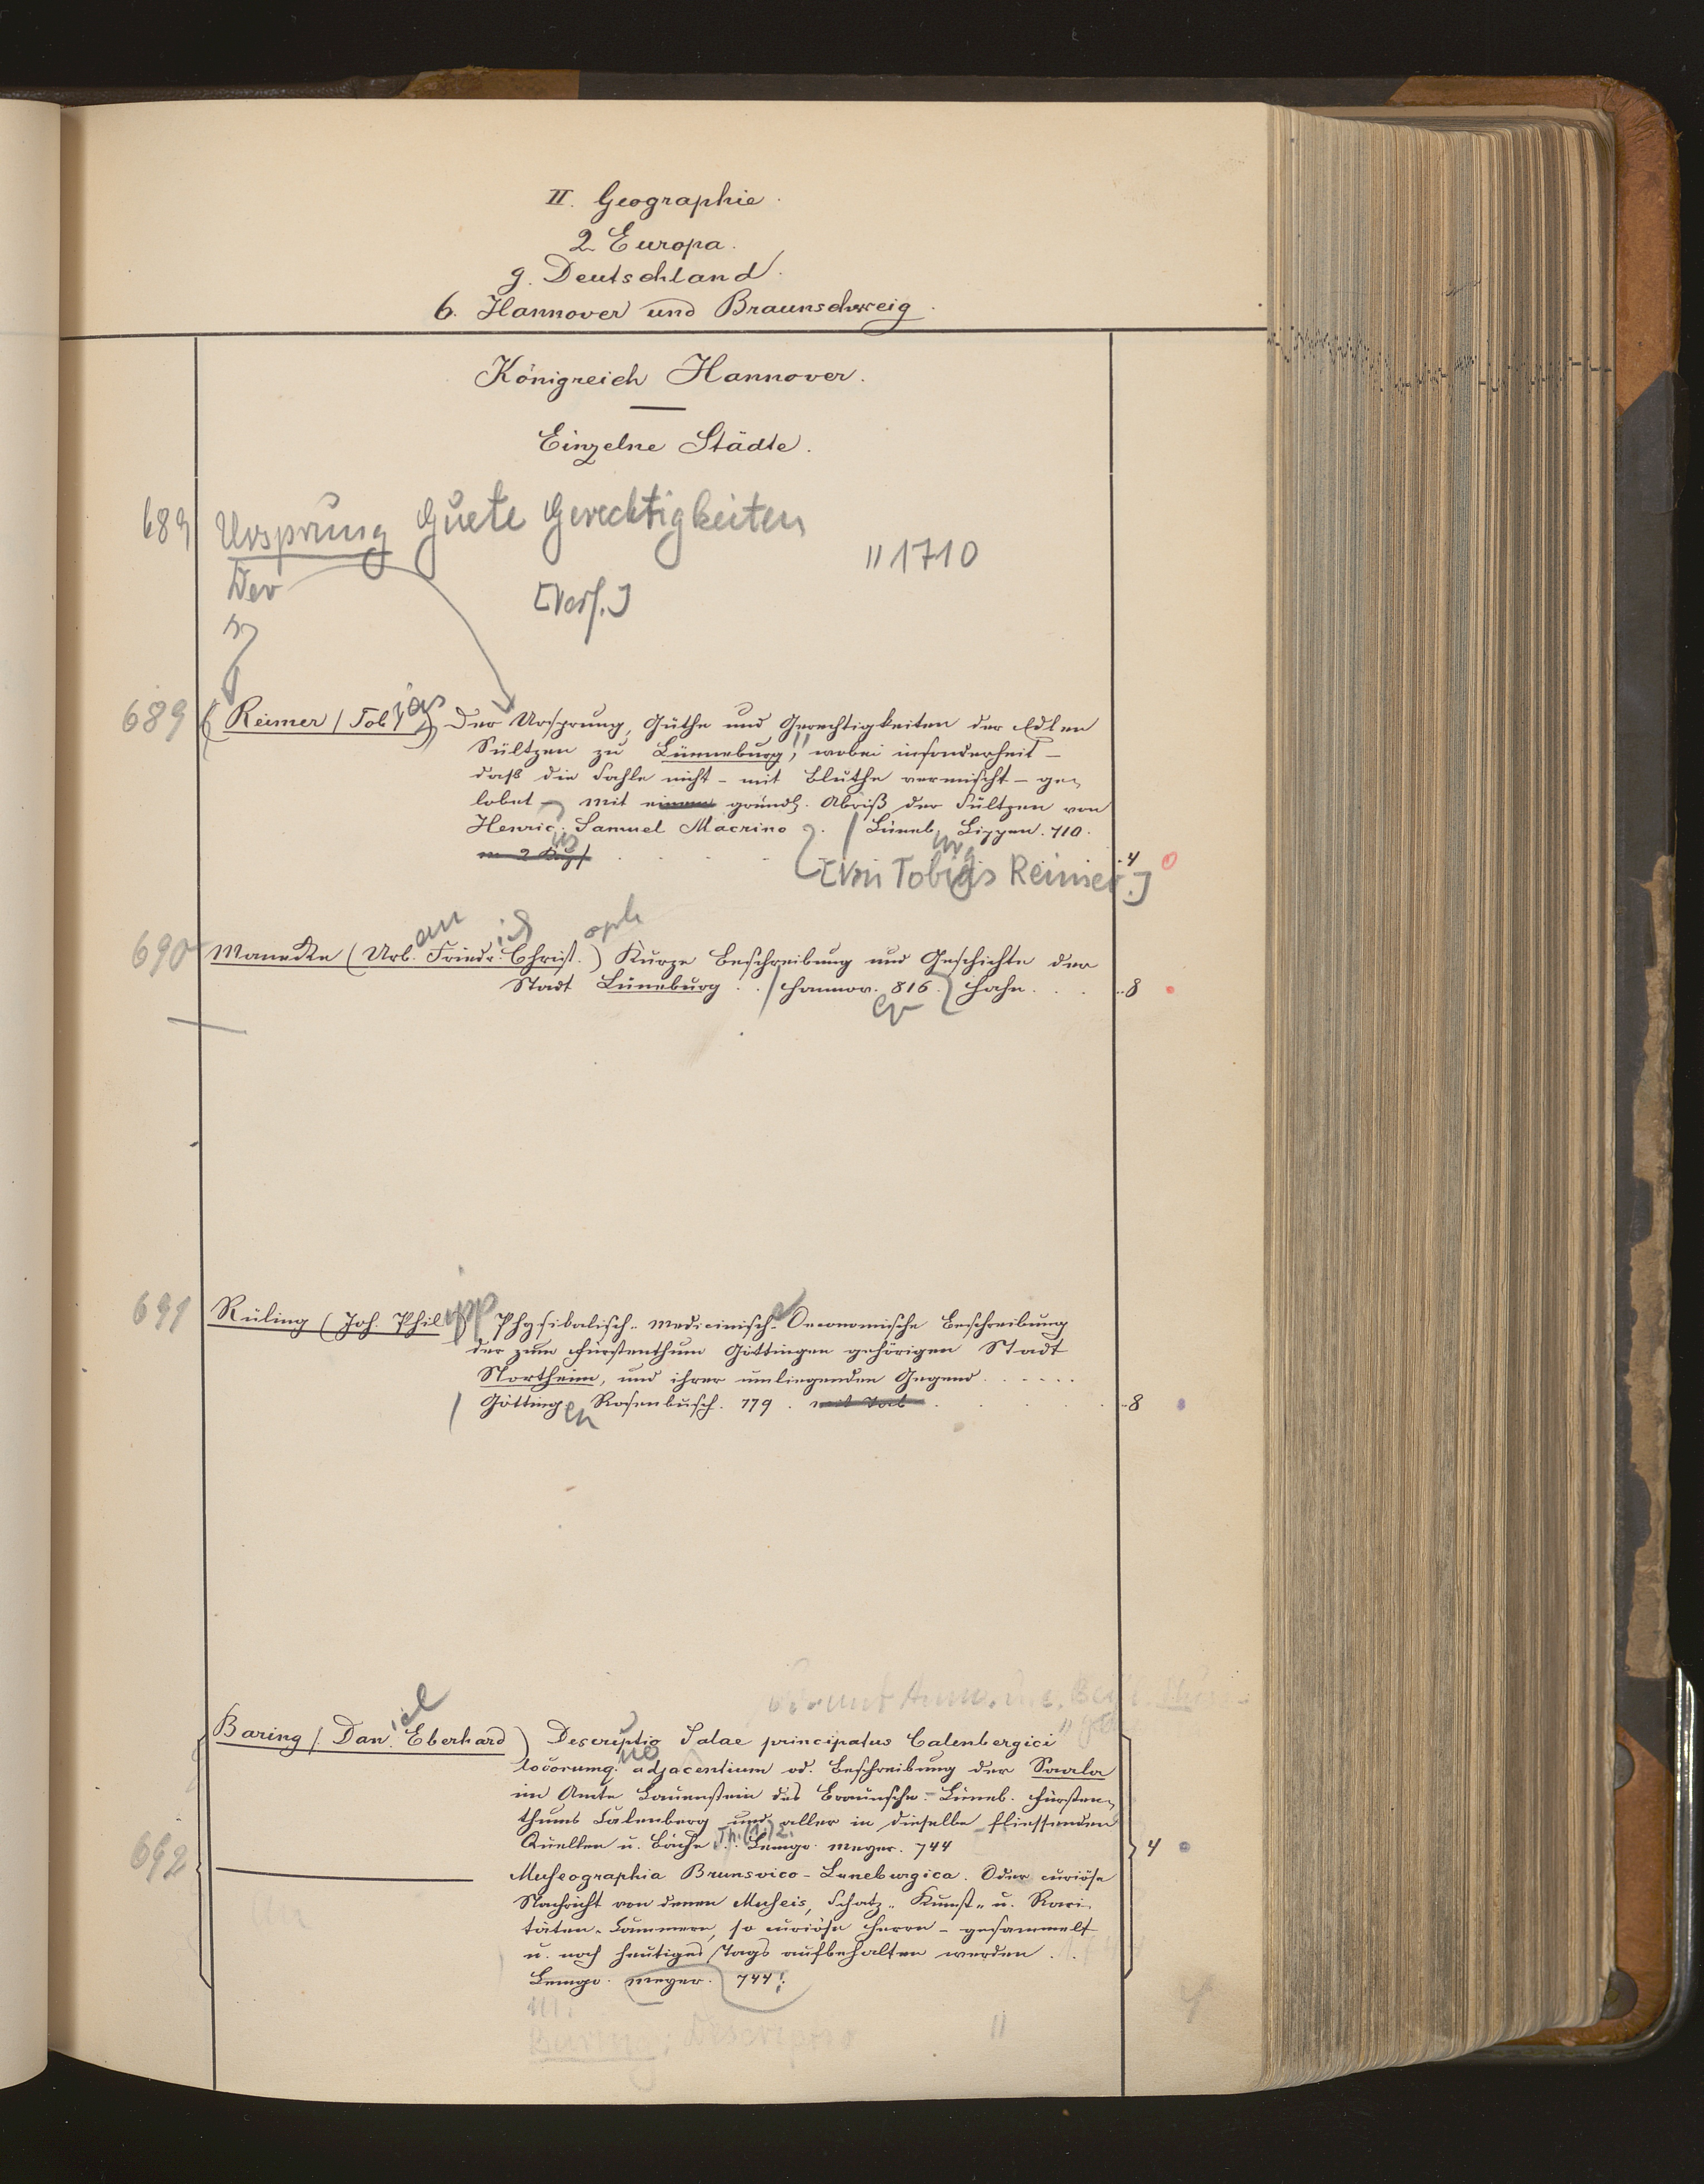 II. Geographie.
2 Europa.
g. Deutschland.
6. Hannover und Braunschweig.
Königreich Hannover.
Einzelne Städte.
689 Ursprung Guete Gerechtigkeiten
" 1710
Der
[Verf.]
689 (Reimer (Tobias) Der Ursprung, Güthe und Gerechtigkeiten der Edlen
Sültzen zu Lünneburg," wobei insonderheit -
daß die Sahle nicht - mit Bluthe vermischt - ge-
lobet - mit einem gründl. Abriß der Sültzen von
Henric. Samuel Macrino . / Lüneburg Lippen. 710.
[Von Tobias Reimer.] 4
690 Manecke (Urban Friedrich Christoph) Kurze Beschreibung und Geschichte der
Stadt Lüneburg . . / Hannover. 816. Hahn. . . . 8
691 Rüling (Joh. Philipp) Physikalisch-Medicinisch-Oeconomische Beschreibung
der zum Fürstenthum Göttingen gehörigen Stadt
Northeim, und ihrer umliegenden Gegend . . . . .
/ Göttingen Rosenbusch. 779. . . . . 8
Baring (Daniel Eberhard) Descriptio Salae principatus Calenbergici "
locorumq. adjacentium od. Beschreibung der Saala
im Amte Lauenstein des Braunschw.-Lüneb. Fürsten-
thums Calenberg und aller in dieselbe fliessenden
Quellen u. Bäche . Th. (1.) 2. Lemgo. Meyer. 744
692 4
Museographia Brunsvico-Luneburgica. Oder curiöse
Nachricht von denen Museis, Schatz- Kunst- u. Rari-
täten-Cammern, so curiöse Herrn - gesammelt
u. noch heutiges Tags aufbehalten werden . .
Lemgo. Meyer. 744.
Baring: Descriptio "